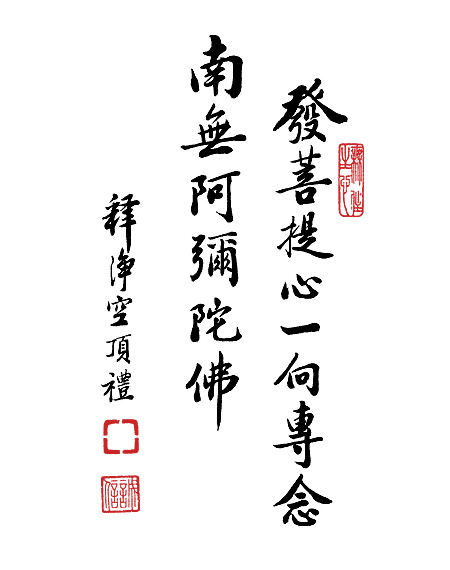 發菩提心一向專念
南無阿彌陀佛
釋淨空頂禮